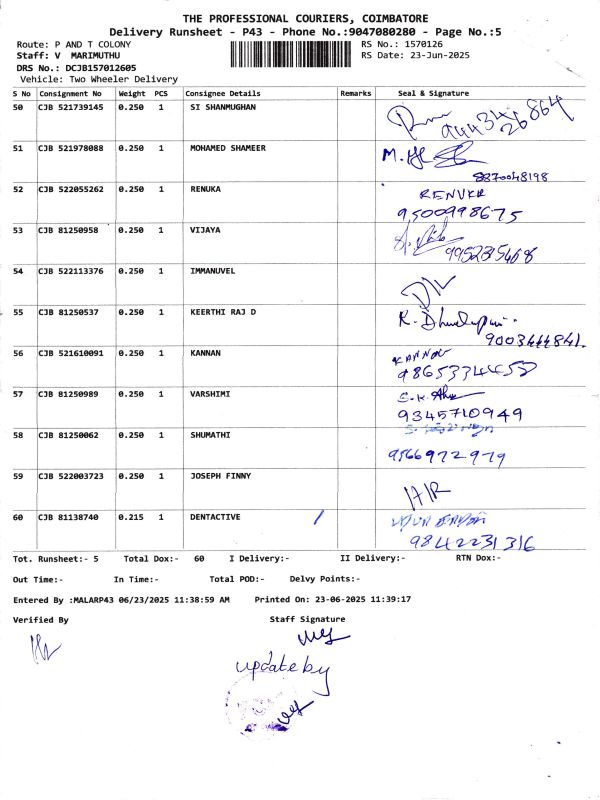 THE PROFESSIONAL COURIERS, COIMBATORE
Delivery Runsheet - P43 - Phone No.:9047080280 - Page No.:5
Route: P AND T COLONY RS No.: 1570126
Staff: V MARIMUTHU RS Date: 23-Jun-2025
DRS No.: DCJB157012605
Vehicle: Two Wheeler Delivery
S No Consignment No Weight PCS Consignee Details Remarks Seal & Signature
50 CJB 521739145 0.250 1 SI SHANMUGHAN 94434 26864
51 CJB 521978088 0.250 1 MOHAMED SHAMEER M.
8870048198
52 CJB 522055262 0.250 1 RENUKA RENUKA
9500998675
53 CJB 81250958 0.250 1 VIJAYA
9952315408
54 CJB 522113376 0.250 1 IMMANUVEL
55 CJB 81250537 0.250 1 KEERTHI RAJ D K.
9003444841.
56 CJB 521610091 0.250 1 KANNAN KANNAN
9865334458
57 CJB 81250989 0.250 1 VARSHIMI
9345710949
58 CJB 81250062 0.250 1 SHUMATHI
9566972979
59 CJB 522003723 0.250 1 JOSEPH FINNY
60 CJB 81138740 0.215 1 DENTACTIVE /
9842231316
Tot. Runsheet:- 5 Total Dox:- 60 I Delivery:- II Delivery:- RTN Dox:-
Out Time:- In Time:- Total POD:- Delvy Points:-
Entered By :MALARP43 06/23/2025 11:38:59 AM Printed On: 23-06-2025 11:39:17
Verified By Staff Signature
update by